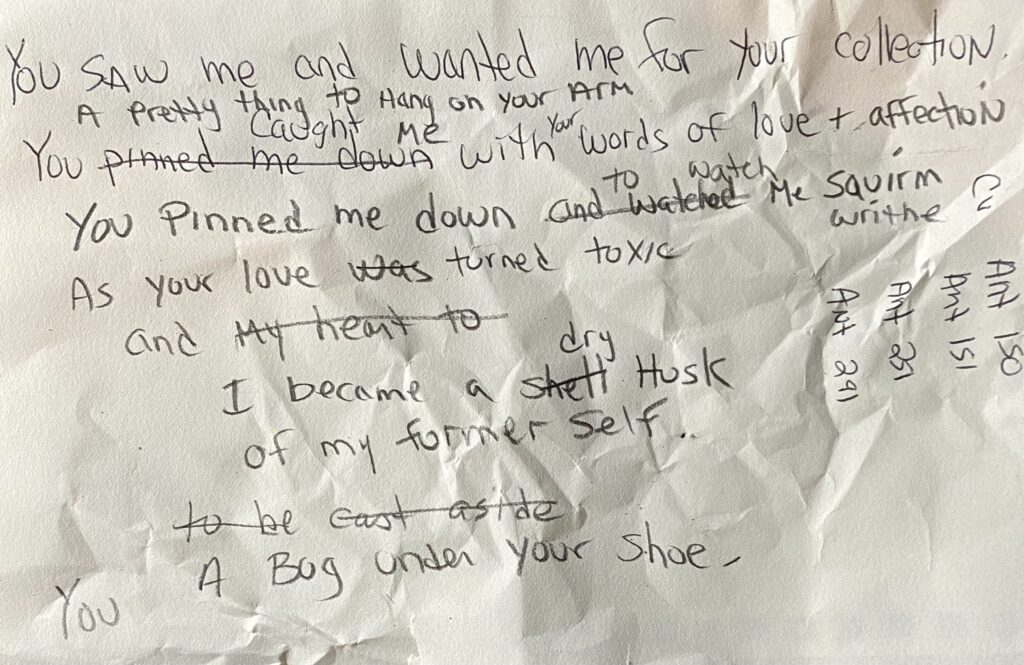 You SAW me and wanted me for your collection.
A Pretty thing to Hang on your ARM
caught me
You pinned me down with your words of love + affection
to watch
You Pinned me down and watched Me Squirm
writhe
As your love was turned toxic
and My heart to
dry
I became a shell Husk
of my former self..
to be cast aside
A Bug under your shoe
You
Ant 150
Ant 151
Ant 251
Ant 291